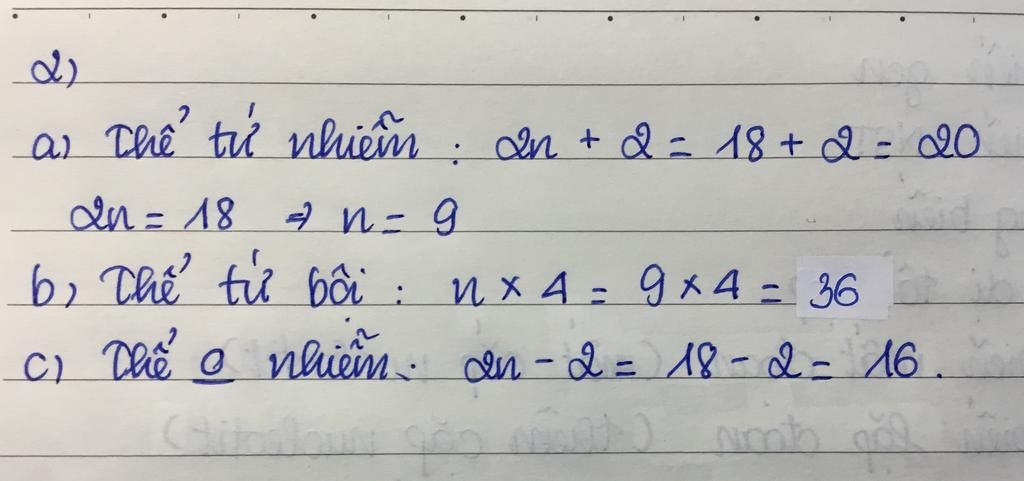 2)
a) Thể tứ nhiễm : 2n + 2 = 18 + 2 = 20
2n = 18 => n = 9
b) Thể tứ bội : n x 4 = 9 x 4 = 36
c) Thể 0 nhiễm : 2n - 2 = 18 - 2 = 16.